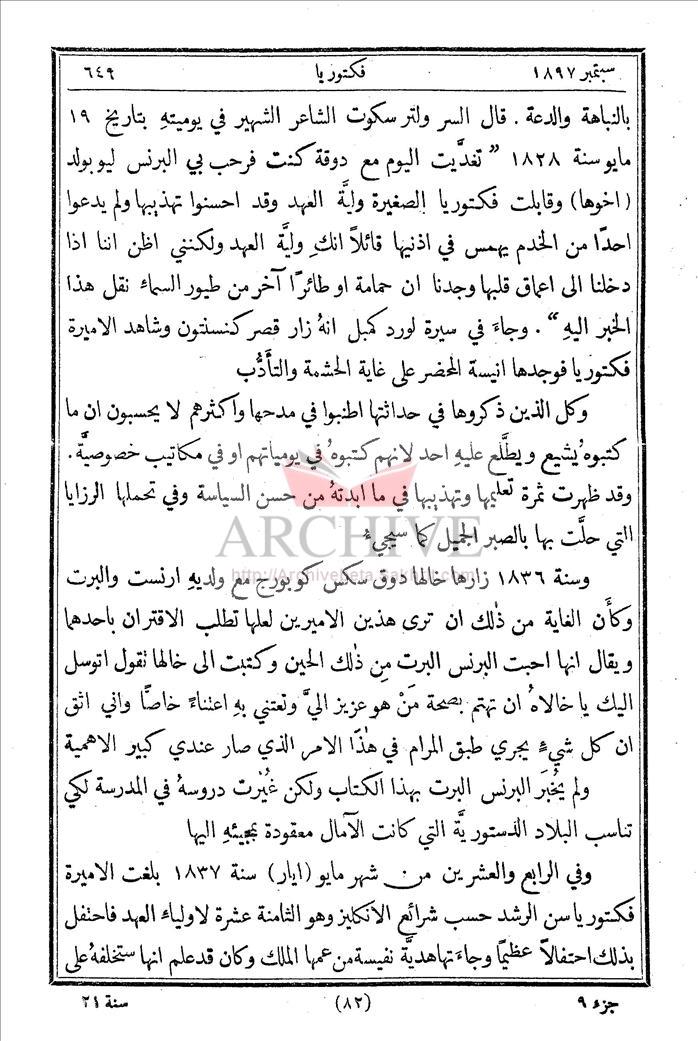 سبتمبر ١٨٩٧ فكتوريا ٦٤٩
بالنباهة والدعة . قال السر ولتر سكوت الشاعر الشهير في يوميتهِ بتاريخ ١٩
مايو سنة ١٨٢٨ " تغدَّيت اليوم مع دوقة كنت فرحب بي البرنس ليوبولد
( اخوها ) وقابلت فكتوريا الصغيرة وليَّة العهد وقد احسنوا تهذيبها ولم يدعوا
احدًا من الخدم يهمس في اذنيها قائلاً انكِ وليَّة العهد ولكنني اظن اننا اذا
دخلنا الى اعماق قلبها وجدنا ان حمامة او طائرًا آخر من طيور السماء نقل هذا
الخبر اليهِ " . وجاءَ في سيرة لورد كمبل انهُ زار قصر كنسنتون وشاهد الاميرة
فكتوريا فوجدها انيسة المحضر على غاية الحشمة والتأدُّب
وكل الذين ذكروها في حداثتها اطنبوا في مدحها واكثرهم لا يحسبون ان ما
كتبوهُ يشيع ويطَّلع عليهِ احد لانهم كتبوهُ في يومياتهم او في مكاتيب خصوصيَّة .
وقد ظهرت ثمرة تعليمها وتهذيبها في ما ابدتهُ من حسن السياسة وفي تحملها الرزايا
ARCHIVE
التي حلَّت بها بالصبر الجميل كما سيجيءُ
http://Archivebeta.Sakhrit.com
وسنة ١٨٣٦ زارها خالها دوق سكس كوبورج مع ولديهِ ارنست والبرت
وكأَن الغاية من ذٰلك ان ترى هذين الاميرين لعلها تطلب الاقتران باحدهما
ويقال انها احبت البرنس البرت مِن ذٰلك الحين وكتبت الى خالها تقول اتوسل
اليك يا خالاهُ ان تهتم بصحة مَنْ هو عزيز اليَّ وتعتني بهِ اعتناءً خاصًّا واني اثق
ان كل شيءٍ يجري طبق المرام في هٰذا الامر الذي صار عندي كبير الاهمية
ولم يُخبَر البرنس البرت بهذا الكتاب ولكن غُيّرت دروسهُ في المدرسة لكي
تناسب البلاد الدستوريَّة التي كانت الآمال معقودة بمجيئهِ اليها
وفي الرابع والعشرين من شهر مايو (ايار) سنة ١٨٣٧ بلغت الاميرة
فكتوريا سن الرشد حسب شرائع الانكليز وهو الثامنة عشرة لاولياء العهد فاحتفل
بذلك احتفالاً عظيمًا وجاءَتها هديَّة نفيسة من عمها الملك وكان قد علم انها ستخلفهُ على
جزء ٩ (٨٢) سنة ٢١